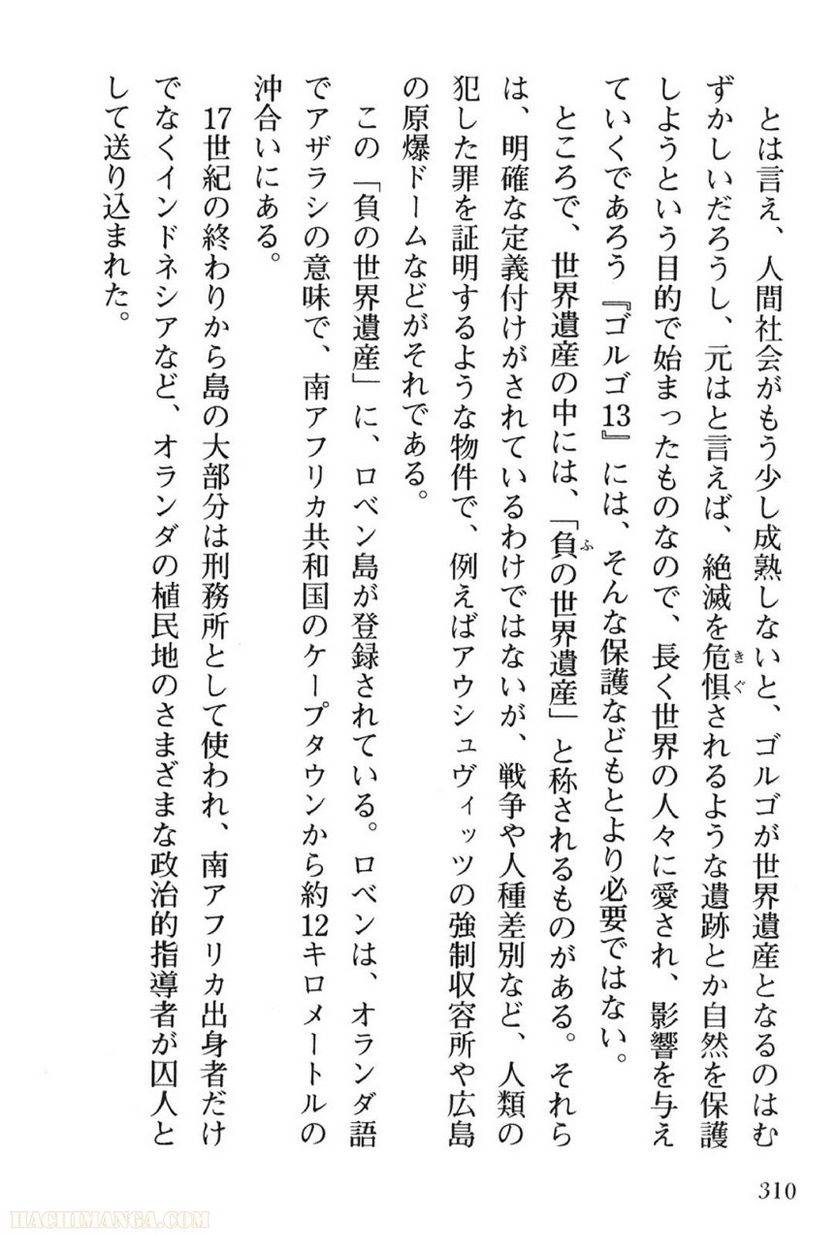 とは言え、人間社会がもう少し成熟しないと、ゴルゴが世界遺産となるのはむ
ずかしいだろうし、元はと言えば、絶滅を危惧されるような遺跡とか自然を保護
しようという目的で始まったものなので、長く世界の人々に愛され、影響を与え
ていくであろう『ゴルゴ13』には、そんな保護などもとより必要ではない。
ところで、世界遺産の中には、「負の世界遺産」と称されるものがある。それら
は、明確な定義付けがされているわけではないが、戦争や人種差別など、人類の
犯した罪を証明するような物件で、例えばアウシュヴィッツの強制収容所や広島
の原爆ドームなどがそれである。
この「負の世界遺産」に、ロベン島が登録されている。ロベンは、オランダ語
でアザラシの意味で、南アフリカ共和国のケープタウンから約12キロメートルの
沖合いにある。
17世紀の終わりから島の大部分は刑務所として使われ、南アフリカ出身者だけ
でなくインドネシアなど、オランダの植民地のさまざまな政治的指導者が囚人と
して送り込まれた。
310
HACHIMANGA.COM